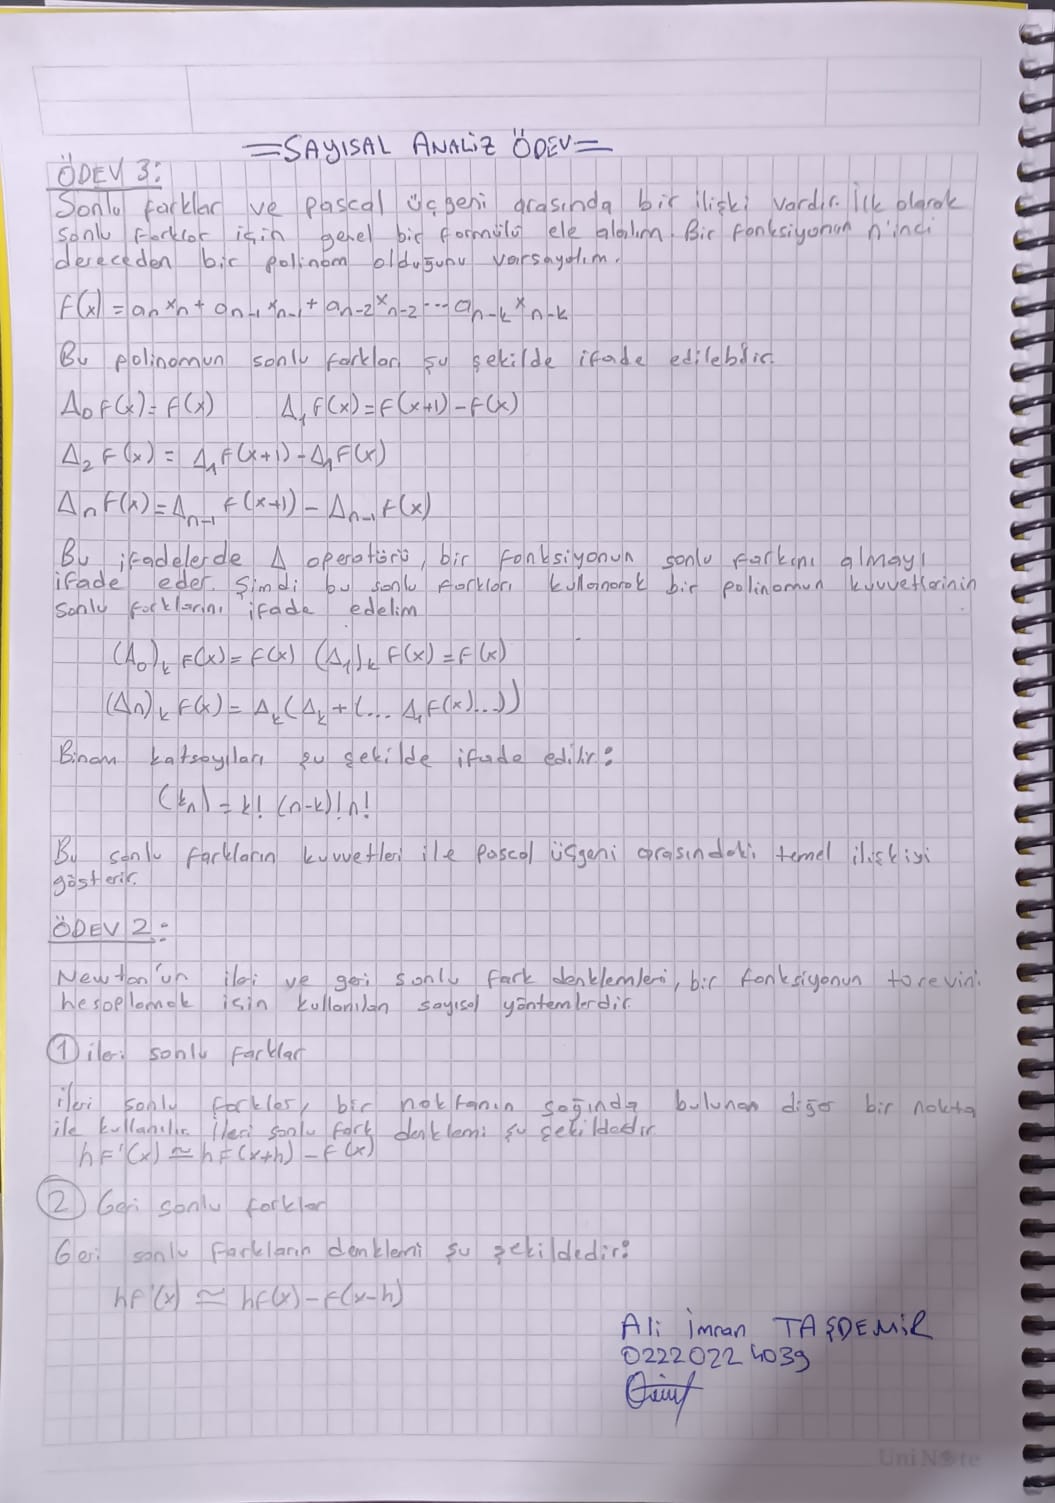 =SAYISAL ANALİZ ÖDEV=
ÖDEV 3:
Sonlu farklar ve pascal üçgeni arasında bir ilişki vardır. İlk olarak
sonlu farklar için genel bir formülü ele alalım. Bir fonksiyonun n'inci
dereceden bir polinom olduğunu varsayalım.
f(x) = aₙxₙ + aₙ₋₁xₙ₋₁ + aₙ₋₂xₙ₋₂ ... aₙ₋ₖxₙ₋ₖ
Bu polinomun sonlu farkları şu şekilde ifade edilebilir.
Δ₀f(x) = f(x) Δ₁f(x) = f(x+1) - f(x)
Δ₂f(x) = Δ₁f(x+1) - Δ₁f(x)
Δₙf(x) = Δₙ₋₁f(x+1) - Δₙ₋₁f(x)
Bu ifadelerde Δ operatörü, bir fonksiyonun sonlu farkını almayı
ifade eder. Şimdi bu sonlu farkları kullanarak bir polinomun kuvvetlerinin
sonlu farklarını ifade edelim
(Δ₀)ₖ f(x) = f(x) (Δ₁)ₖ f(x) = f(x)
(Δₙ)ₖ f(x) = Δₖ(Δₖ+(... Δ₁f(x)...))
Binom katsayıları şu şekilde ifade edilir:
(kₙ) = k! (n-k)! n!
Bu sonlu farkların kuvvetleri ile Pascal üçgeni arasındaki temel ilişkiyi
gösterir.
ÖDEV 2:
Newton'un ileri ve geri sonlu fark denklemleri, bir fonksiyonun türevini
hesaplamak için kullanılan sayısal yöntemlerdir.
① ileri sonlu farklar
ileri sonlu farklar, bir noktanın sağında bulunan diğer bir nokta
ile kullanılır. İleri sonlu fark denklemi şu şekildedir.
hf'(x) ≃ hf(x+h) - f(x)
② Geri sonlu farklar
Geri sonlu farkların denklemi şu şekildedir:
hf'(x) ≃ hf(x) - f(x-h)
Ali imran TAŞDEMİR
02220224039
UniNote